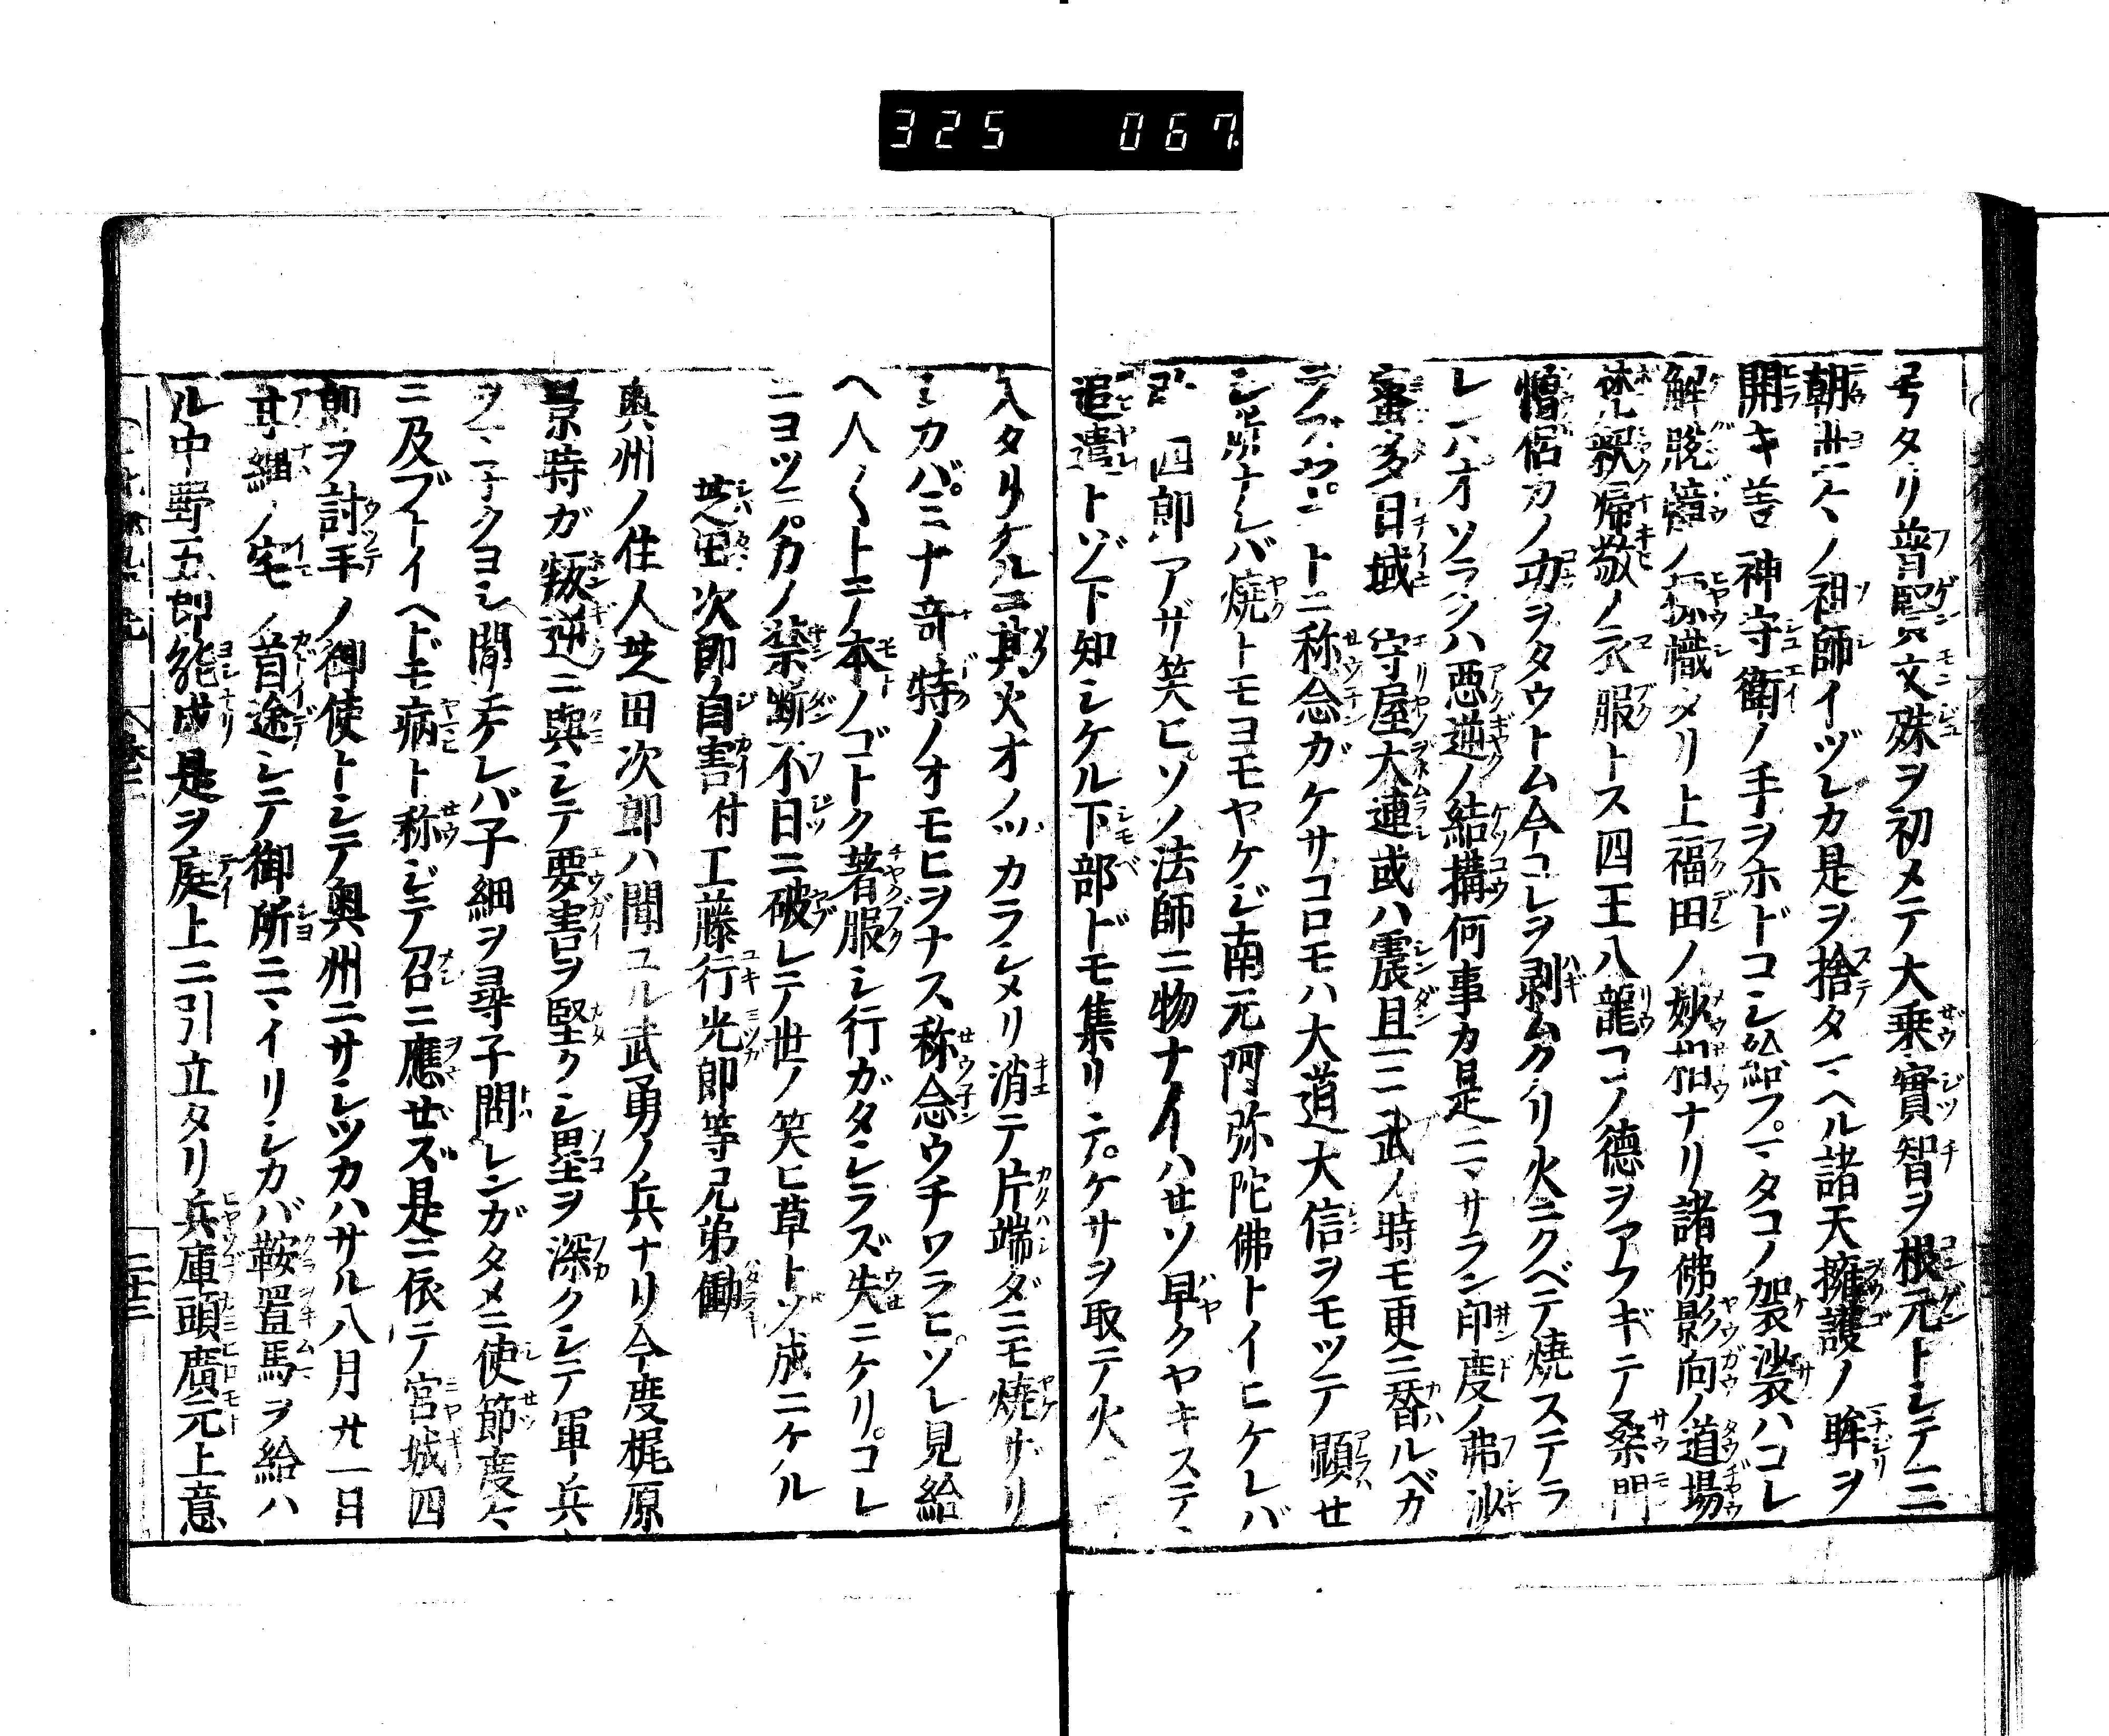 325 067
号タリ普賢文殊ヲ初メテ大乗實智ヲ根元トシテ三
朝世々ノ祖師イヅレカ是ヲ捨タマヘル諸天擁護ノ眸ヲ
開キ善神守衛ノ手ヲホドコシ給フマタコノ袈裟ハコレ
解脱幢ノ標幟タリ上福田ノ妙相ナリ諸佛影向ノ道場
梵釈帰敬ノ衣服トス四王八龍コノ徳ヲアフギテ桑門
僧侶カノ功ヲタウトム今コレヲ剥ムクリ火ニクベテ焼ステラ
レンハオソラクハ悪逆ノ結構何事カ是ニマサラン印度ノ弗沙
蜜多日域守屋大連或ハ震旦三武ノ時モ更ニ替ルベカ
ラズワニトニ称念ガケサコロモハ大道大信ヲモツテ顕セ
シ光ナレバ焼トモヨモヤケジ南元阿弥陀佛トイヒケレバ
四郎アザ笑ヒソノ法師ニ物ナイハセソ早クヤキステヽ
追遣トゾ下知シケル下部ドモ集リテケサヲ取テ火
入タリケルニ其火オノヅカラシメリ消テ片端ダニモ焼ザリ
シカバミナ奇特ノオモヒヲナス称念ウチワラヒソレ見給
ヘ人〱トテ本ノゴトク著服シ行ガタシラズ失ニケリコレ
ニヨツテカノ禁断不日ニ破レテ世ノ笑ヒ草トゾ成ニケル
芝田次郎自害付工藤行光郎等兄弟働
奥州ノ住人芝田次郎ハ聞ユル武勇ノ兵ナリ今度梶原
景時ガ叛逆ニ與シテ要害ヲ堅クシ塁ヲ深クシテ軍兵
ヲマ子クヨシ聞エケレバ子細ヲ尋子問レンガタメニ使節度々
ニ及ブトイヘドモ病ト称ジテ召ニ應ゼズ是ニ依テ宮城四
郎ヲ討手ノ御使トシテ奥州ニサシツカハサル八月廿一日
甘縄ノ宅ノ首途シテ御所ニマイリシカバ鞍置馬ヲ給ハ
ル中野五郎能成是ヲ庭上ニ引立タリ兵庫頭廣元上意
二十三